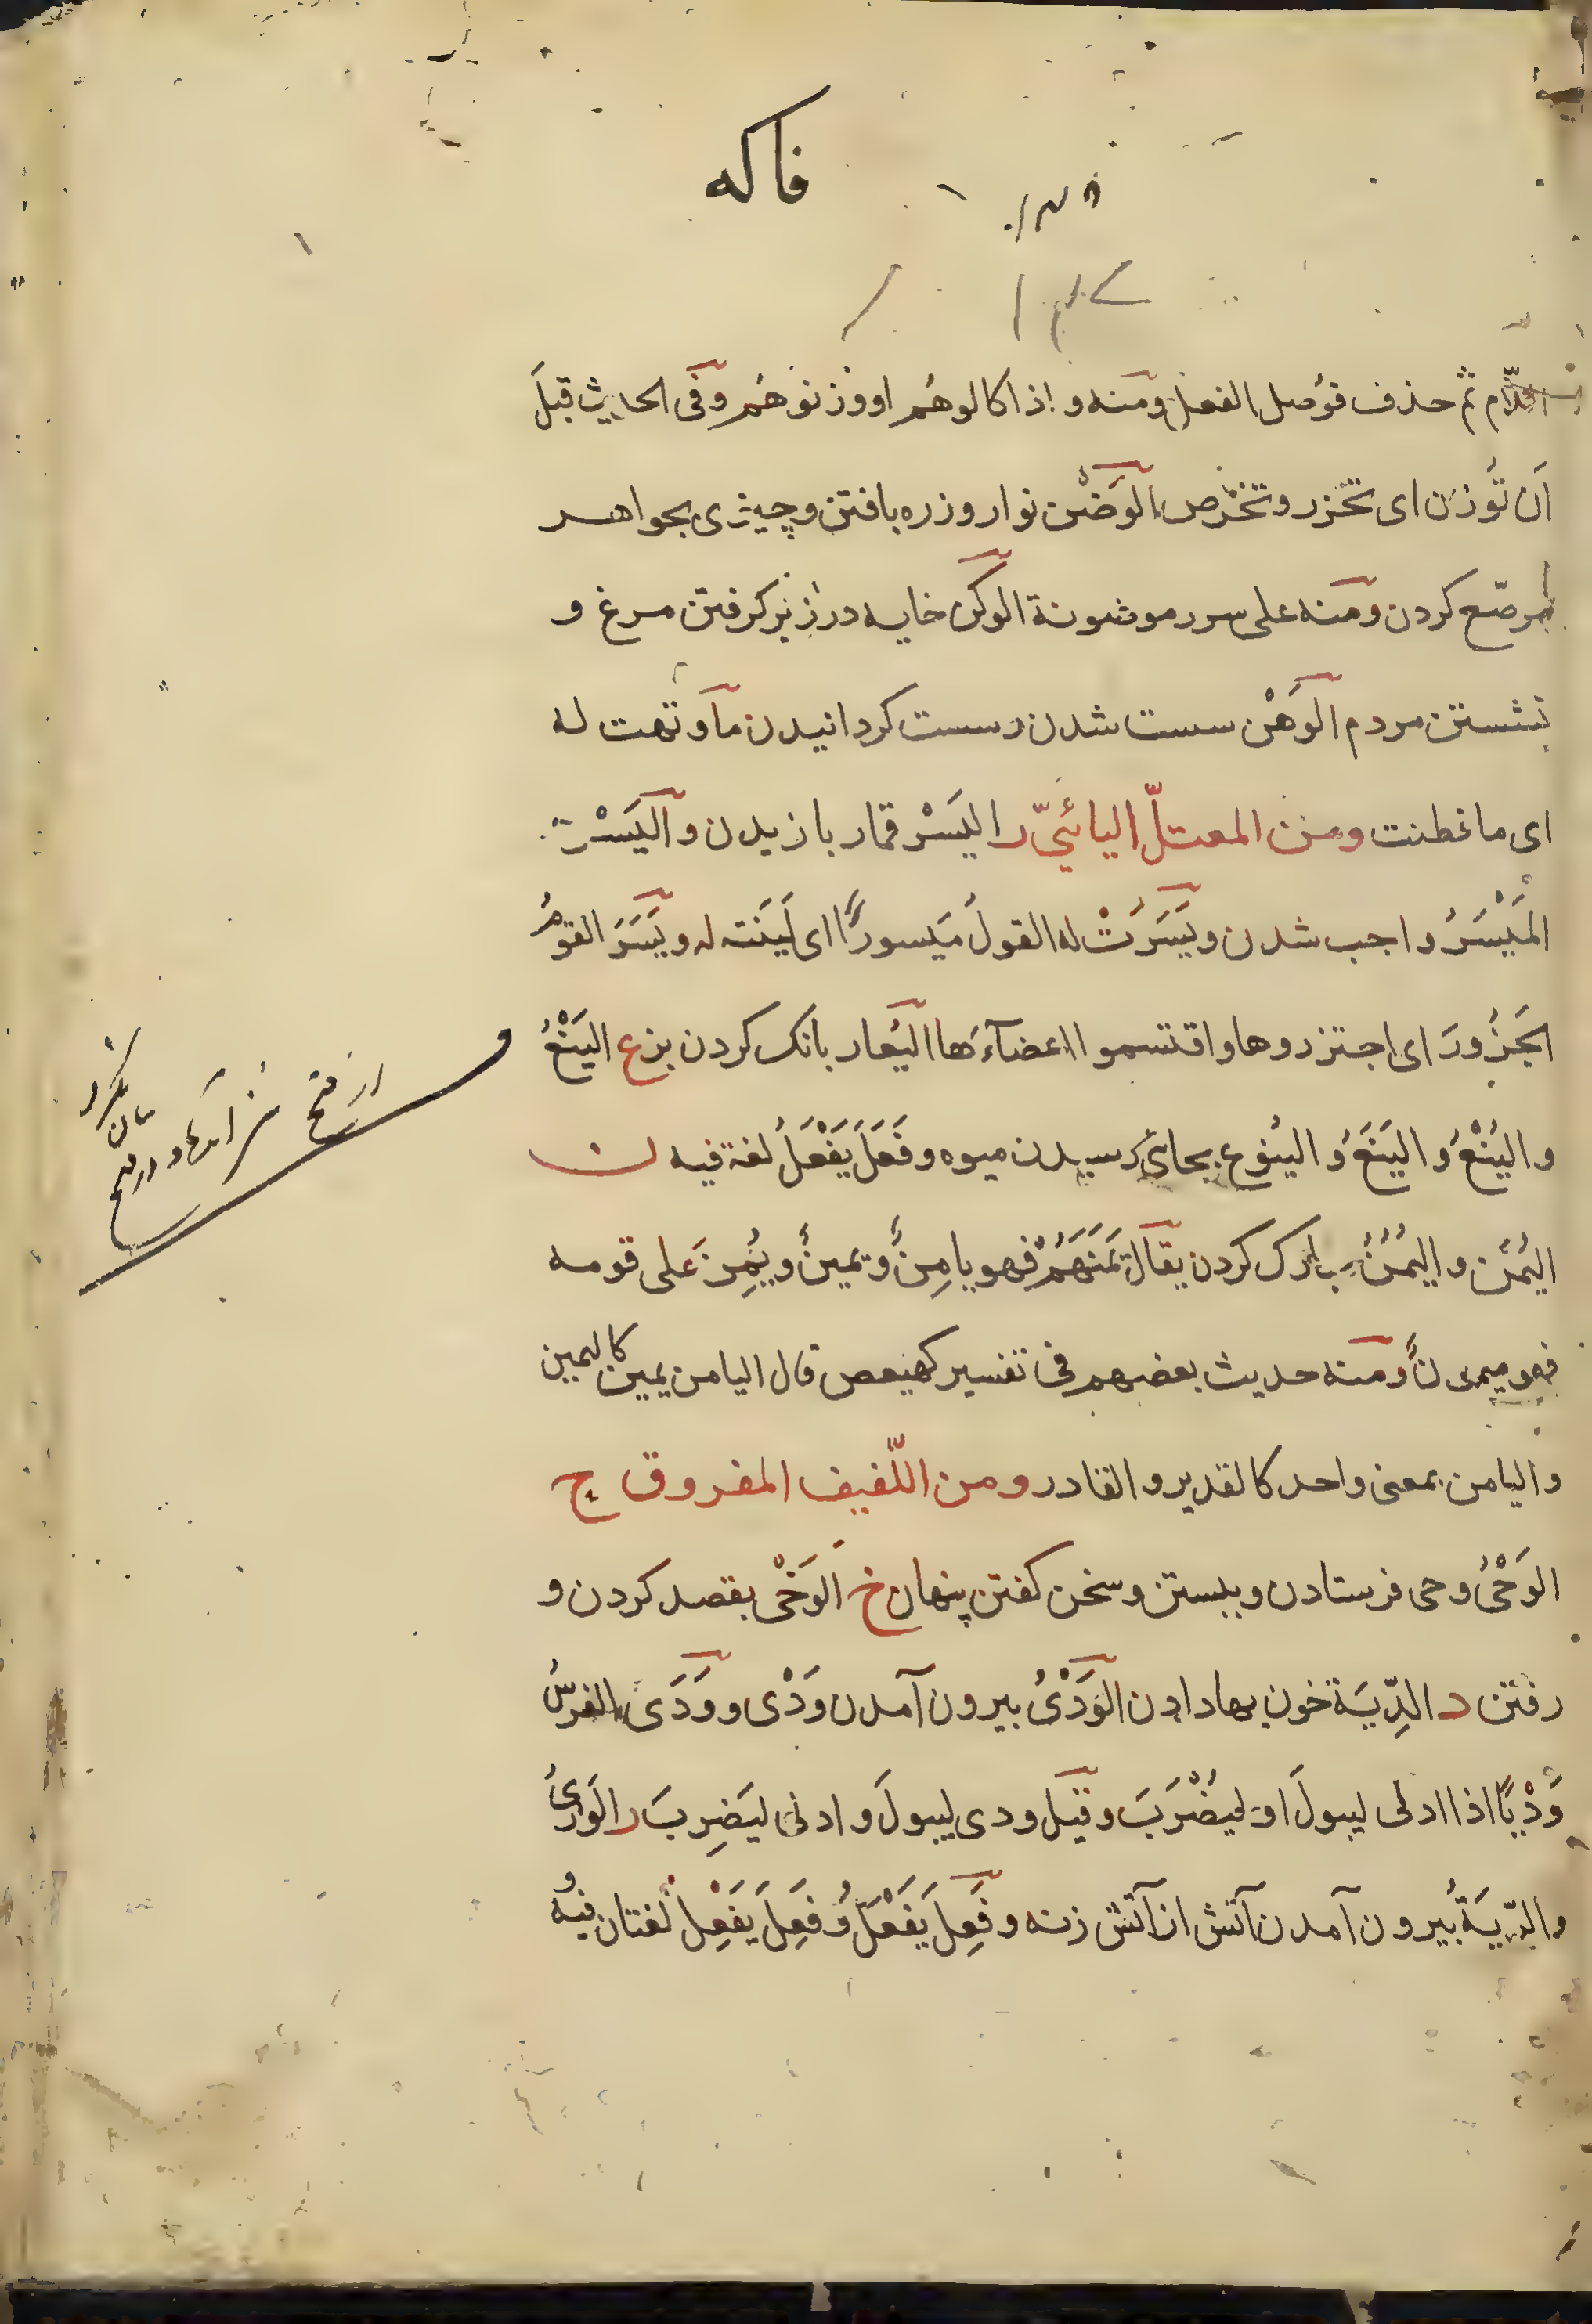 فاكه
اللّام ثمّ حذف فوُصل الفعل ومنه و اذا كالوهُم او وزنوهُم وفى الحديث قبلَ
اَن تُوزن اى تحَزر وتخرص الوَضْن نوار و زره بافتن و چيزى بجواهر
مرصّع كردن ومنه على سرر موضونة الوكن خايه در زير كرفتن مرغ و
نشستن مردم الوَهْن سست شدن و سست كردانيدن ما وَهَت له
اى ما فطنت ومن المعتلّ اليائىّ ر اليَسْر قمار بازيدن و اليَسْر
المَيْسَرُ واجب شدن و يَسَرَتْ له القولَ مَيسورًا اى لَيَنَته له و يَسَرَ القومُ
الجَزُورَ اى اجتزروها و اقتسموا اعضآءَها اليُعار بانك كردن بز ع اليَنْعُ
و اليُنْعُ و اليَنَعُ و اليُنوع بجاى رسيدن ميوه و فَعَلَ يَفْعَلُ لغة فيه ن
اليُمْن و اليُمُنُ مبارك كردن يقال يَمَنَهُمْ فهو يامِنٌ و يمينٌ و يُمِنَ على قومه
فهو ميمونٌ ومنه حديث بعضهم فى تفسير كهيعص قال اليامن يمين كاليمين
و اليامن بمعنى واحد كالقدير و القادر ومن اللّفيف المفروق ح
الوَحْىُ وحى فرستادن و ببستن و سخن كفتن پنهان خ الوَخْى بقصد كردن و
رفتن د الدِّيَة خون بها دادن الوَدْىُ بيرون آمدن وَدْى و وَدَى الفرسُ
وَدْيًا اذا ادلى ليبولَ او ليَضْرِبَ وقيل ودى ليبولَ و ادلى ليَضرِبَ ر الوَرىُ
و الرّيَةُ بيرون آمدن آتش از آتش زنه و فَعِلَ يَفْعَلُ و فَعِلَ يَفعِلُ لغتان فيه